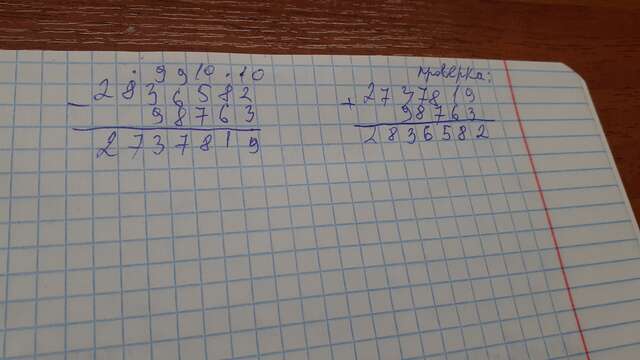 . 9 9 10 . 10
- 2836582
98763
2737819
проверка:
+ 2737819
98763
2836582